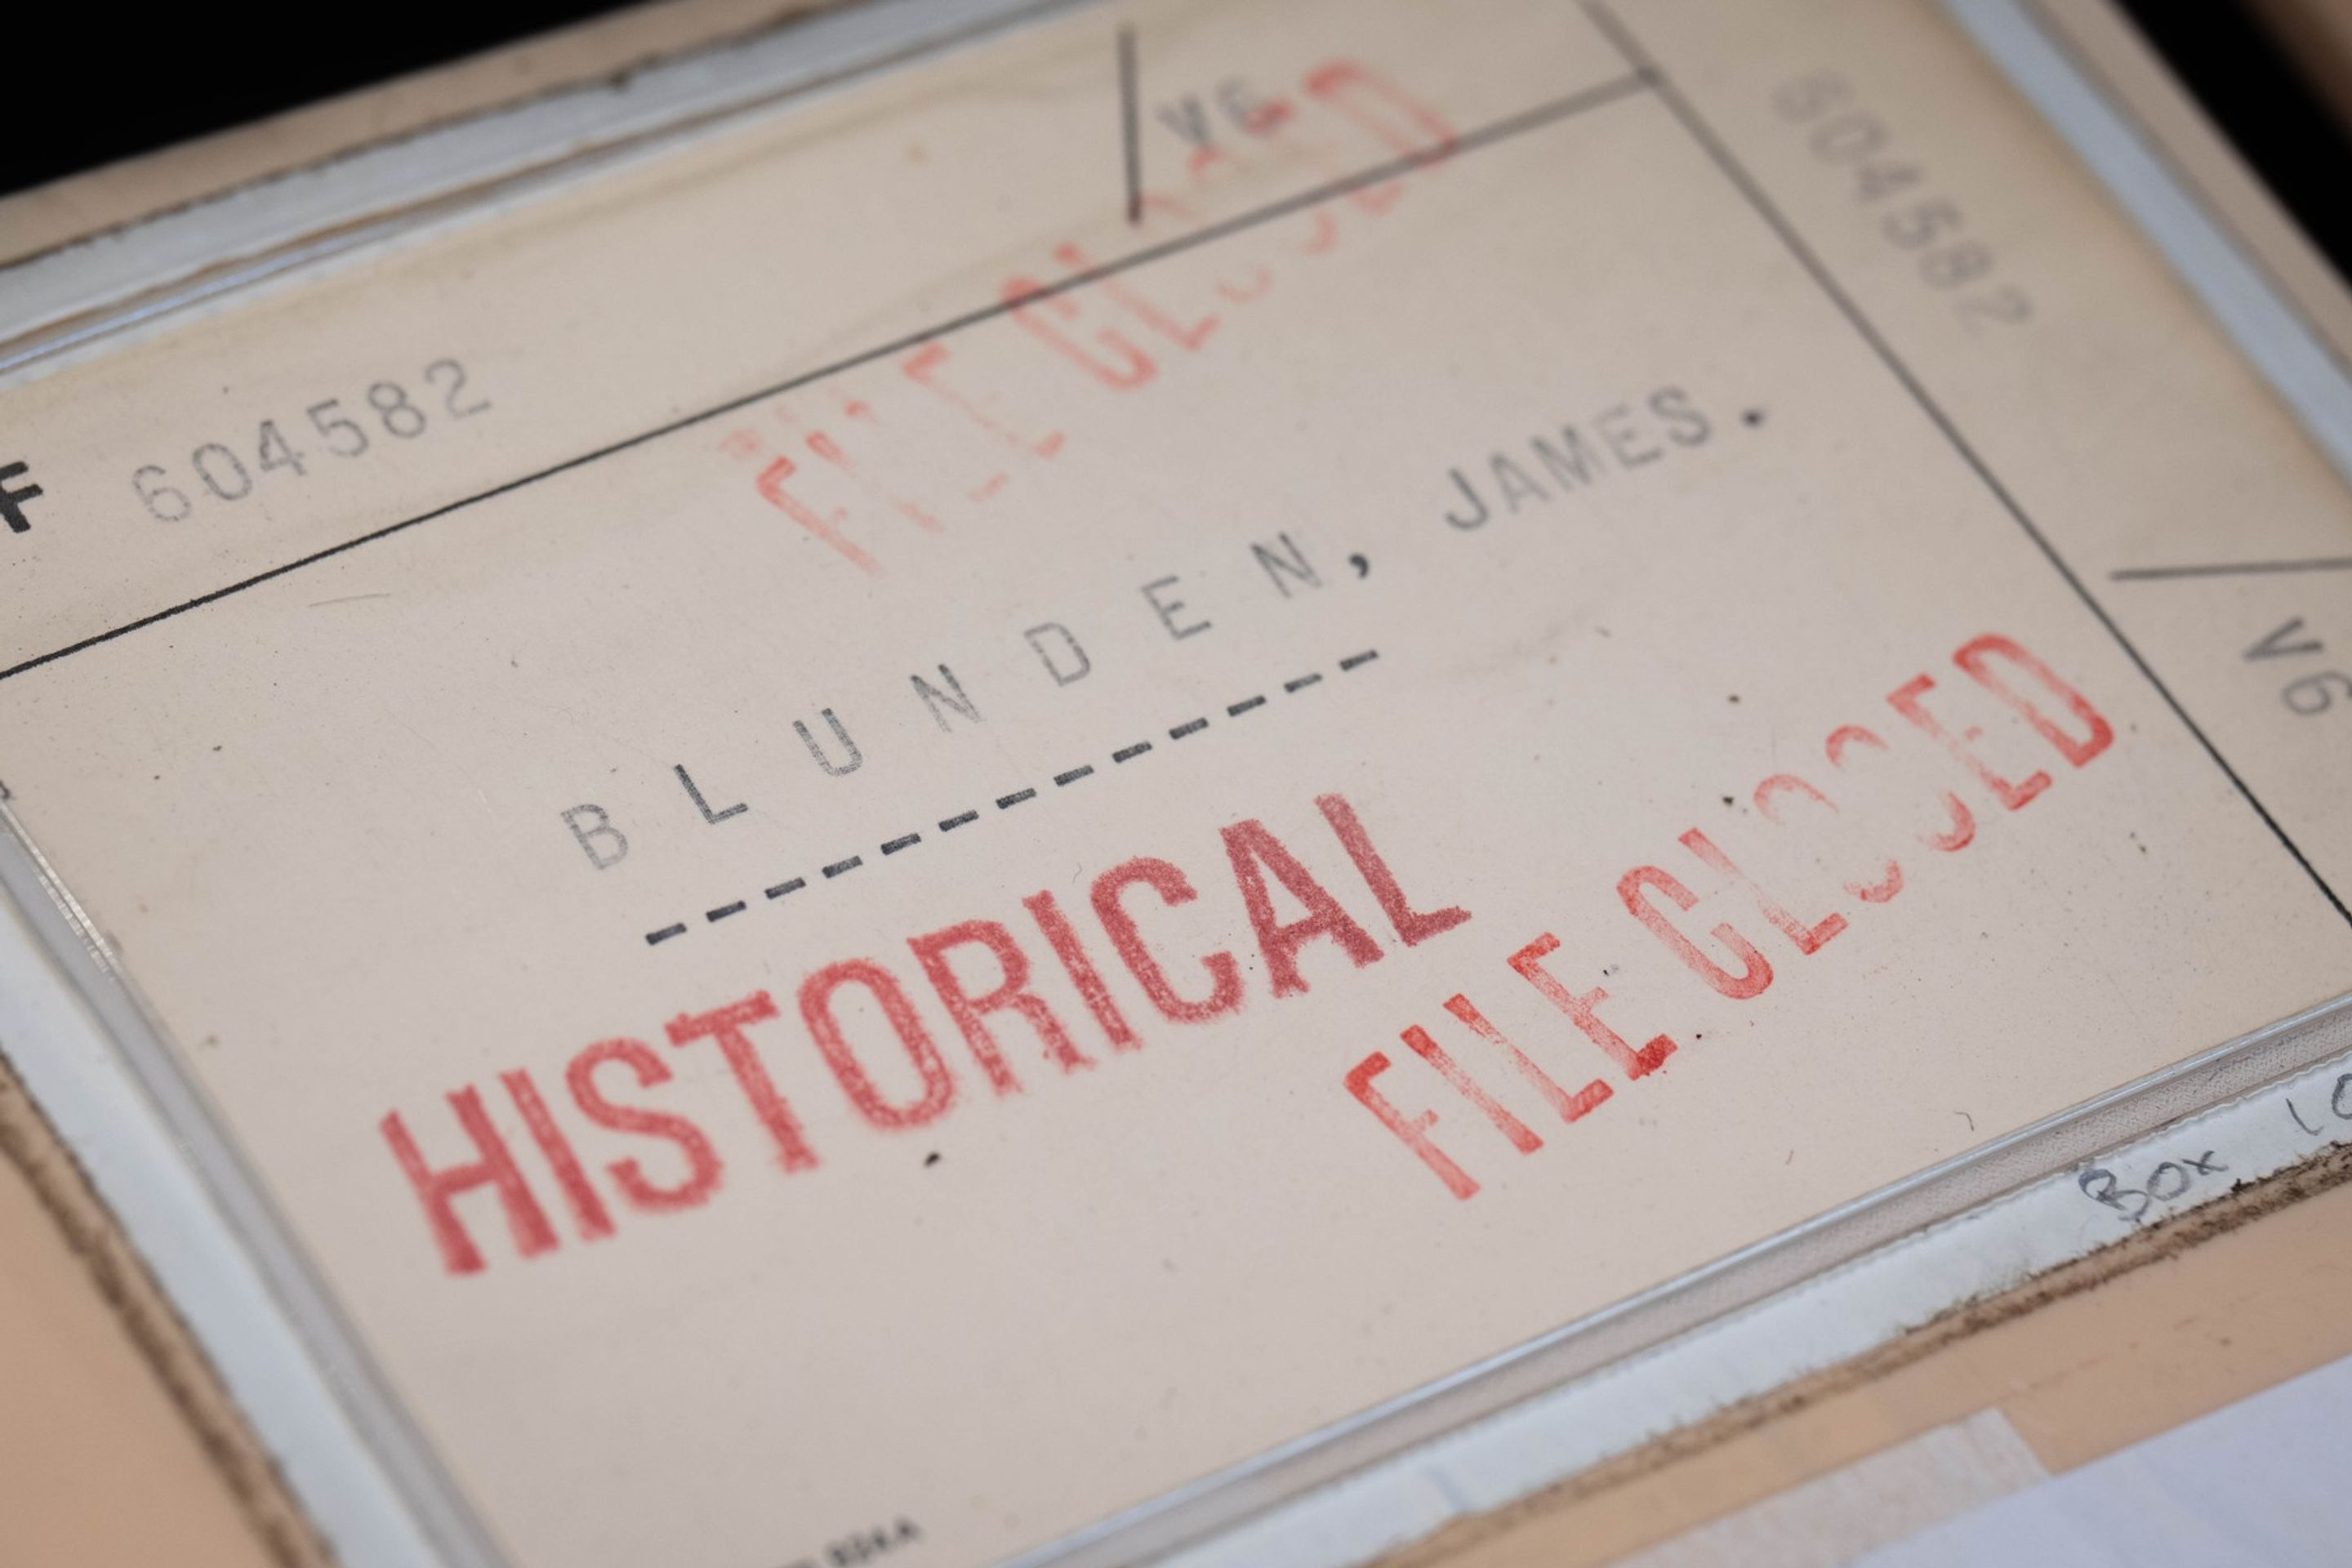 F 604582 / V6
604582 / V6
FILE CLOSED
BLUNDEN, JAMES.
HISTORICAL
FILE CLOSED
Box